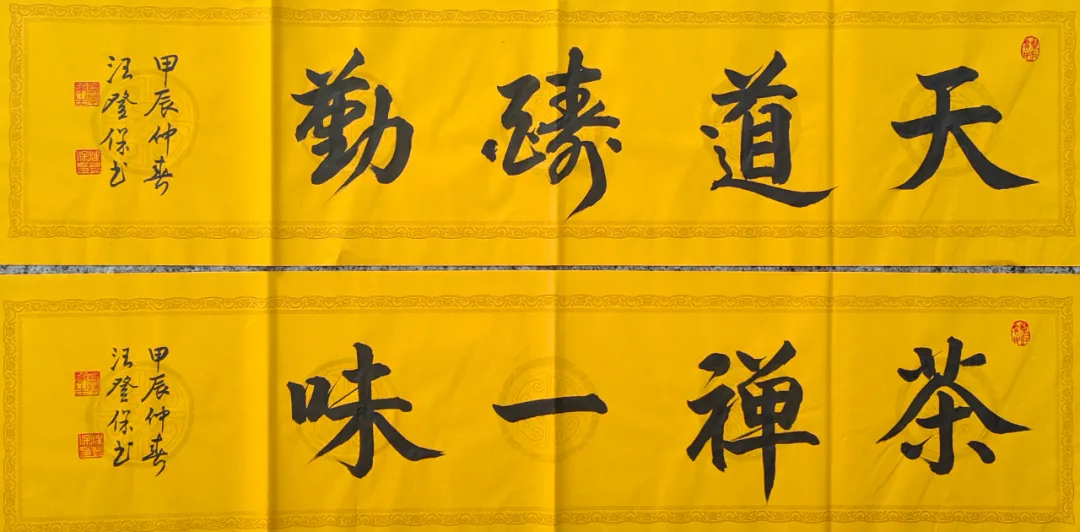 天道醻勤
甲辰仲春
汪登保书
茶禅一味
甲辰仲春
汪登保书